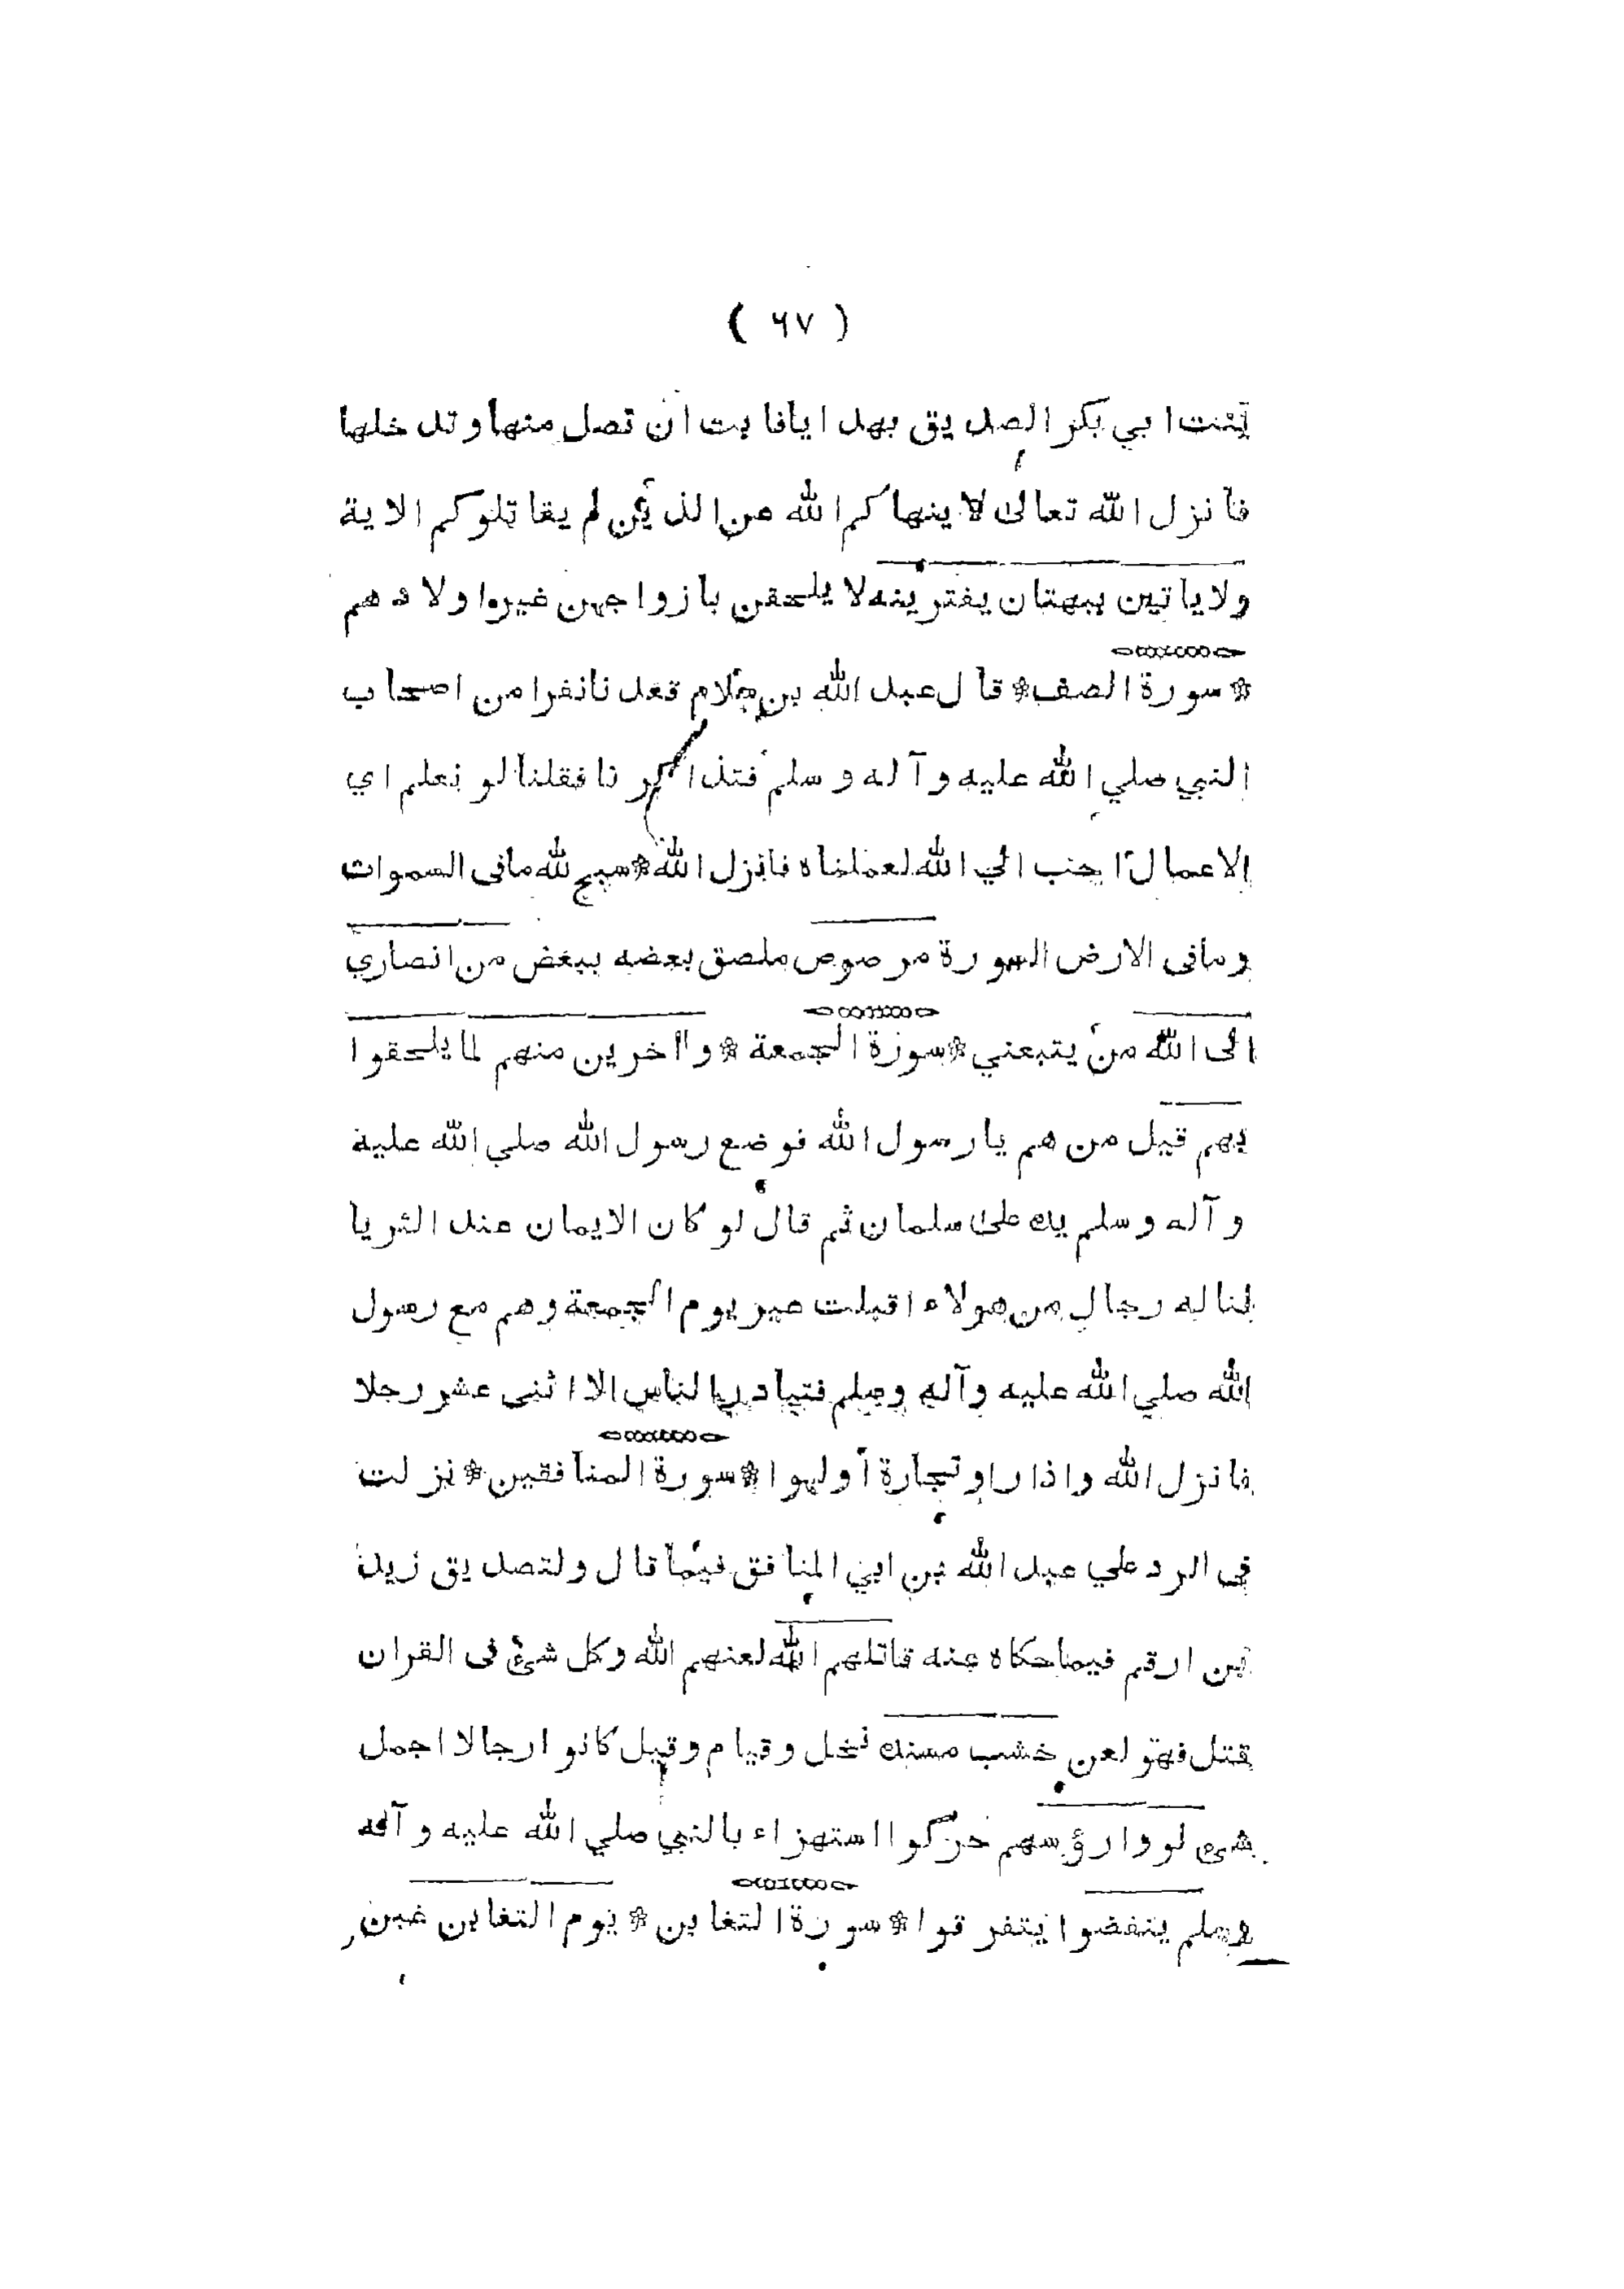 ( ٦٧ )
بنت ابي بكر الصديق بهدايا فابت ان تصل منها وتدخلها
فانزل الله تعالى لا ينهاكم الله عن الذين لم يقاتلوكم الاية
ولا ياتين ببهتان يفترينه لا يلحقن بازواجهن غير اولادهم
* سورة الصف * قال عبد الله بن سلام قعدنا نفرا من اصحاب
النبي صلي الله عليه وآله وسلم فتذاكرنا فقلنا لو نعلم اي
الاعمال احب الي الله لعملناه فانزل الله * سبح لله مافى السموات
ومافى الارض السورة مرصوص ملصق بعضه ببعض من انصاري
الى الله من يتبعني * سورة الجمعة * وآخرين منهم لما يلحقوا
بهم قيل من هم يا رسول الله فوضع رسول الله صلي الله عليه
وآله وسلم يده على سلمان ثم قال لو كان الايمان عند الثريا
لناله رجال من هولاء اقبلت عير يوم الجمعة وهم مع رسول
الله صلي الله عليه وآله وسلم فتبادر الناس الا اثنى عشر رجلا
فانزل الله واذا راو تجارة أو لهوا * سورة المنافقين * نزلت
فى الرد علي عبد الله بن ابي المنافق فيما قال ولتصديق زيد
بن ارقم فيما حكاه عنه قاتلهم الله لعنهم الله وكل شئ فى القران
قتل فهو لعن خشب مسنده نخل وقيام وقيل كانوا رجالا اجمل
شئ لووا رؤسهم حركوا استهزاء بالنبي صلي الله عليه وآله
وسلم ينفضوا يتفرقوا * سورة التغابن * يوم التغابن غبن